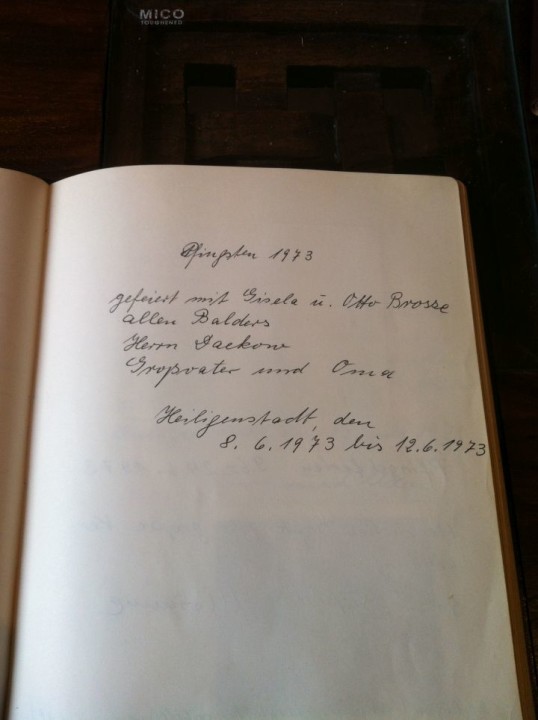 MICO
TOUGHENED
Pfingsten 1973
gefeiert mit Gisela u. Otto Brosse
allen Balders
Herrn Dackow
Großvater und Oma
Heiligenstadt, den
8. 6. 1973 bis 12.6.1973